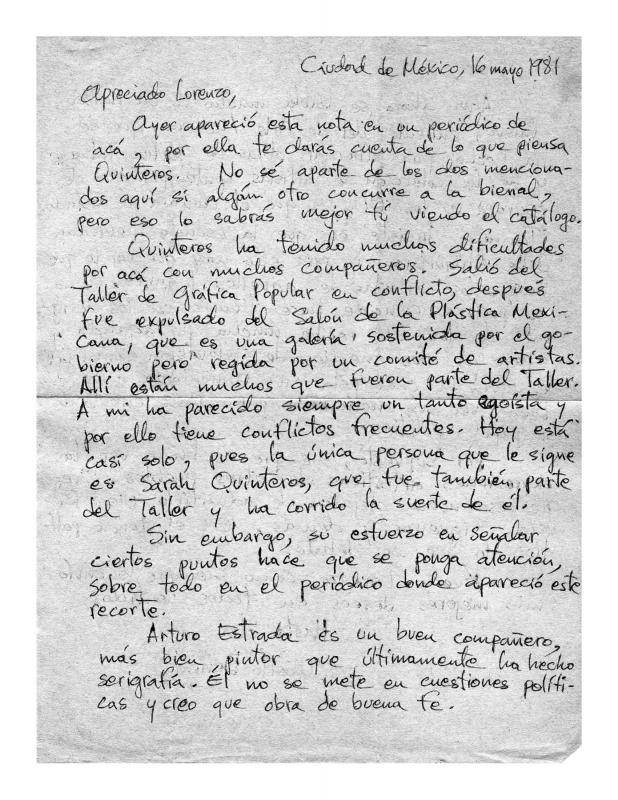 Ciudad de México, 16 mayo 1981
Apreciado Lorenzo,
Ayer apareció esta nota en un periódico de
acá, por ella te darás cuenta de lo que piensa
Quinteros. No sé aparte de los dos menciona-
dos aquí si algún otro concurre a la bienal,
pero eso lo sabrás mejor tú viendo el catálogo.
Quinteros ha tenido muchas dificultades
por acá con muchos compañeros. Salió del
Taller de Gráfica Popular en conflicto, después
fue expulsado del Salón de la Plástica Mexi-
cana, que es una galería sostenida por el go-
bierno pero regida por un comité de artistas.
Allí están muchos que fueron parte del Taller.
A mi ha parecido siempre un tanto egoísta y
por ello tiene conflictos frecuentes. Hoy está
casi solo, pues la única persona que le sigue
es Sarah Quinteros, que fue también parte
del Taller y ha corrido la suerte de él.
Sin embargo, su esfuerzo en señalar
ciertos puntos hace que se ponga atención,
sobre todo en el periódico donde apareció este
recorte.
Arturo Estrada es un buen compañero,
más bien pintor que últimamente ha hecho
serigrafía. Él no se mete en cuestiones políti-
cas y creo que obra de buena fe.